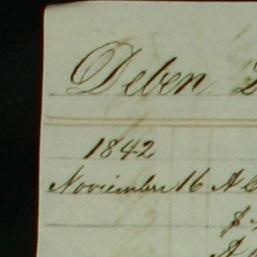 Deben
1842
November 16 A C